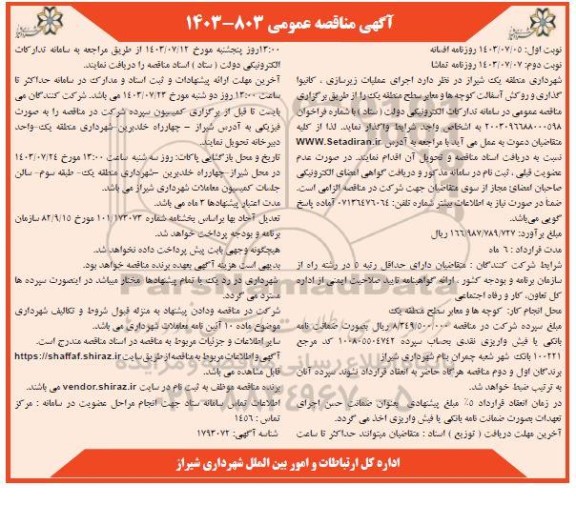 آگهی مناقصه عمومی ۸۰۳-۱۴۰۳
نوبت اول: ۱۴۰۳/۰۷/۰۵ روزنامه افسانه
نوبت دوم: ۱۴۰۳/۰۷/۰۷ روزنامه تماشا
شهرداری منطقه یک شیراز در نظر دارد اجرای عملیات زیرسازی ، کانیوا
گذاری و روکش آسفالت کوچه ها و معابر سطح منطقه یک را از طریق برگزاری
مناقصه عمومی در سامانه تدارکات الکترونیکی دولت ( ستاد ) با شماره فراخوان
۲۰۰۳۰۹۶۶۸۸۰۰۰۵۹۸ به اشخاص واجد شرایط واگذار نماید. لذا از کلیه
متقاضیان دعوت به عمل می آید با مراجعه به آدرس WWW.Setadiran.ir
نسبت به دریافت اسناد مناقصه و تحویل آن اقدام نمایند. در صورت عدم
عضویت قبلی ، ثبت نام در سامانه مذکور و دریافت گواهی امضای الکترونیکی
صاحبان امضای مجاز از سوی متقاضیان جهت شرکت در مناقصه الزامی است.
ضمنا در صورت نیاز به اطلاعات بیشتر شماره تلفن: ۰۶۴-۰۷۱۳۶۴۷۶ آماده پاسخ
گویی می‌باشد.
مبلغ برآورد: ۱۶۶/۹۸۷/۷۸۹/۷۲۷ ریال
مدت قرارداد : ۶ ماه
شرایط شرکت کنندگان : متقاضیان دارای حداقل رتبه ۵ در رشته راه از
سازمان برنامه و بودجه کشور . ارائه گواهینامه تایید صلاحیت ایمنی از اداره
کل تعاون، کار و رفاه اجتماعی
محل انجام کار: کوچه ها و معابر سطح منطقه یک
مبلغ سپرده شرکت در مناقصه ۸/۳۴۹/۵۰۰/۰۰۰ ریال بصورت ضمانت نامه
بانکی یا فیش واریزی نقدی بحساب سپرده ۱۰۰۸۰۵۵۰۴۷۴۲ کد مرجع
۱۰۰۲۲۱ بانک شهر شعبه چمران بنام شهرداری شیراز
برندگان اول و دوم مناقصه هرگاه حاضر به انعقاد قرارداد نشوند سپرده آنان
به ترتیب ضبط خواهد شد.
در زمان انعقاد قرارداد ۵٪ مبلغ پیشنهادی بعنوان ضمانت حسن اجرای
تعهدات بصورت ضمانت نامه بانکی یا فیش واریزی اخذ می گردد.
آخرین مهلت دریافت ( توزیع ) اسناد : متقاضیان میتوانند حداکثر تا ساعت
۱۳:۰۰ روز پنجشنبه مورخ ۱۴۰۳/۰۷/۱۲ از طریق مراجعه به سامانه تدارکات
الکترونیکی دولت ( ستاد ) اسناد مناقصه را دریافت نمایند.
آخرین مهلت ارائه پیشنهادات و ثبت اسناد و مدارک در سامانه حداکثر تا
ساعت ۱۳:۰۰ روز دو شنبه مورخ ۱۴۰۳/۰۷/۲۳ می باشد. شرکت کنندگان می
بایست تا قبل از برگزاری کمیسیون سپرده شرکت در مناقصه را به صورت
فیزیکی به آدرس شیراز - چهارراه خلدبرین -شهرداری منطقه یک-واحد
دبیرخانه تحویل نمایند.
تاریخ و محل بازگشایی پاکات: روز سه شنبه ساعت ۱۳:۰۰ مورخ ۱۴۰۳/۰۷/۲۴
در محل شیراز-چهارراه خلدبرین -شهرداری منطقه یک- طبقه سوم- سالن
جلسات کمیسیون معاملات شهرداری شیراز می باشد.
مدت اعتبار پیشنهادها ۳ ماه می باشد.
تعدیل آحاد بها براساس بخشنامه شماره ۱۰۱/۱۷۳۰۷۳ مورخ ۸۲/۹/۱۵ سازمان
برنامه و بودجه پرداخت خواهد شد.
هیچگونه وجهی بابت پیش پرداخت داده نخواهد شد.
بدیهی است هزینه آگهی بعهده برنده مناقصه خواهد بود.
شهرداری در رد یک یا تمام پیشنهادها مختار میباشد در اینصورت سپرده ها
مسترد می گردد.
شرکت در مناقصه ودادن پیشنهاد به منزله قبول شروط و تکالیف شهرداری
موضوع ماده ۱۰ آئین نامه معاملات شهرداری می باشد.
سایر اطلاعات و جزئیات مربوط به مناقصه در اسناد مناقصه مندرج است.
آگهی و اطلاعات مربوط به مناقصه از طریق سایت https://shaffaf.shiraz.ir
قابل مشاهده می باشد.
برنده مناقصه موظف به ثبت نام در سایت vendor.shiraz.ir می باشند.
اطلاعات تماس سامانه ستاد جهت انجام مراحل عضویت در سامانه : مرکز
تماس : ۱۴۵۶
شناسه آگهی: ۱۷۹۳۰۷۲
اداره کل ارتباطات و امور بین الملل شهرداری شیراز